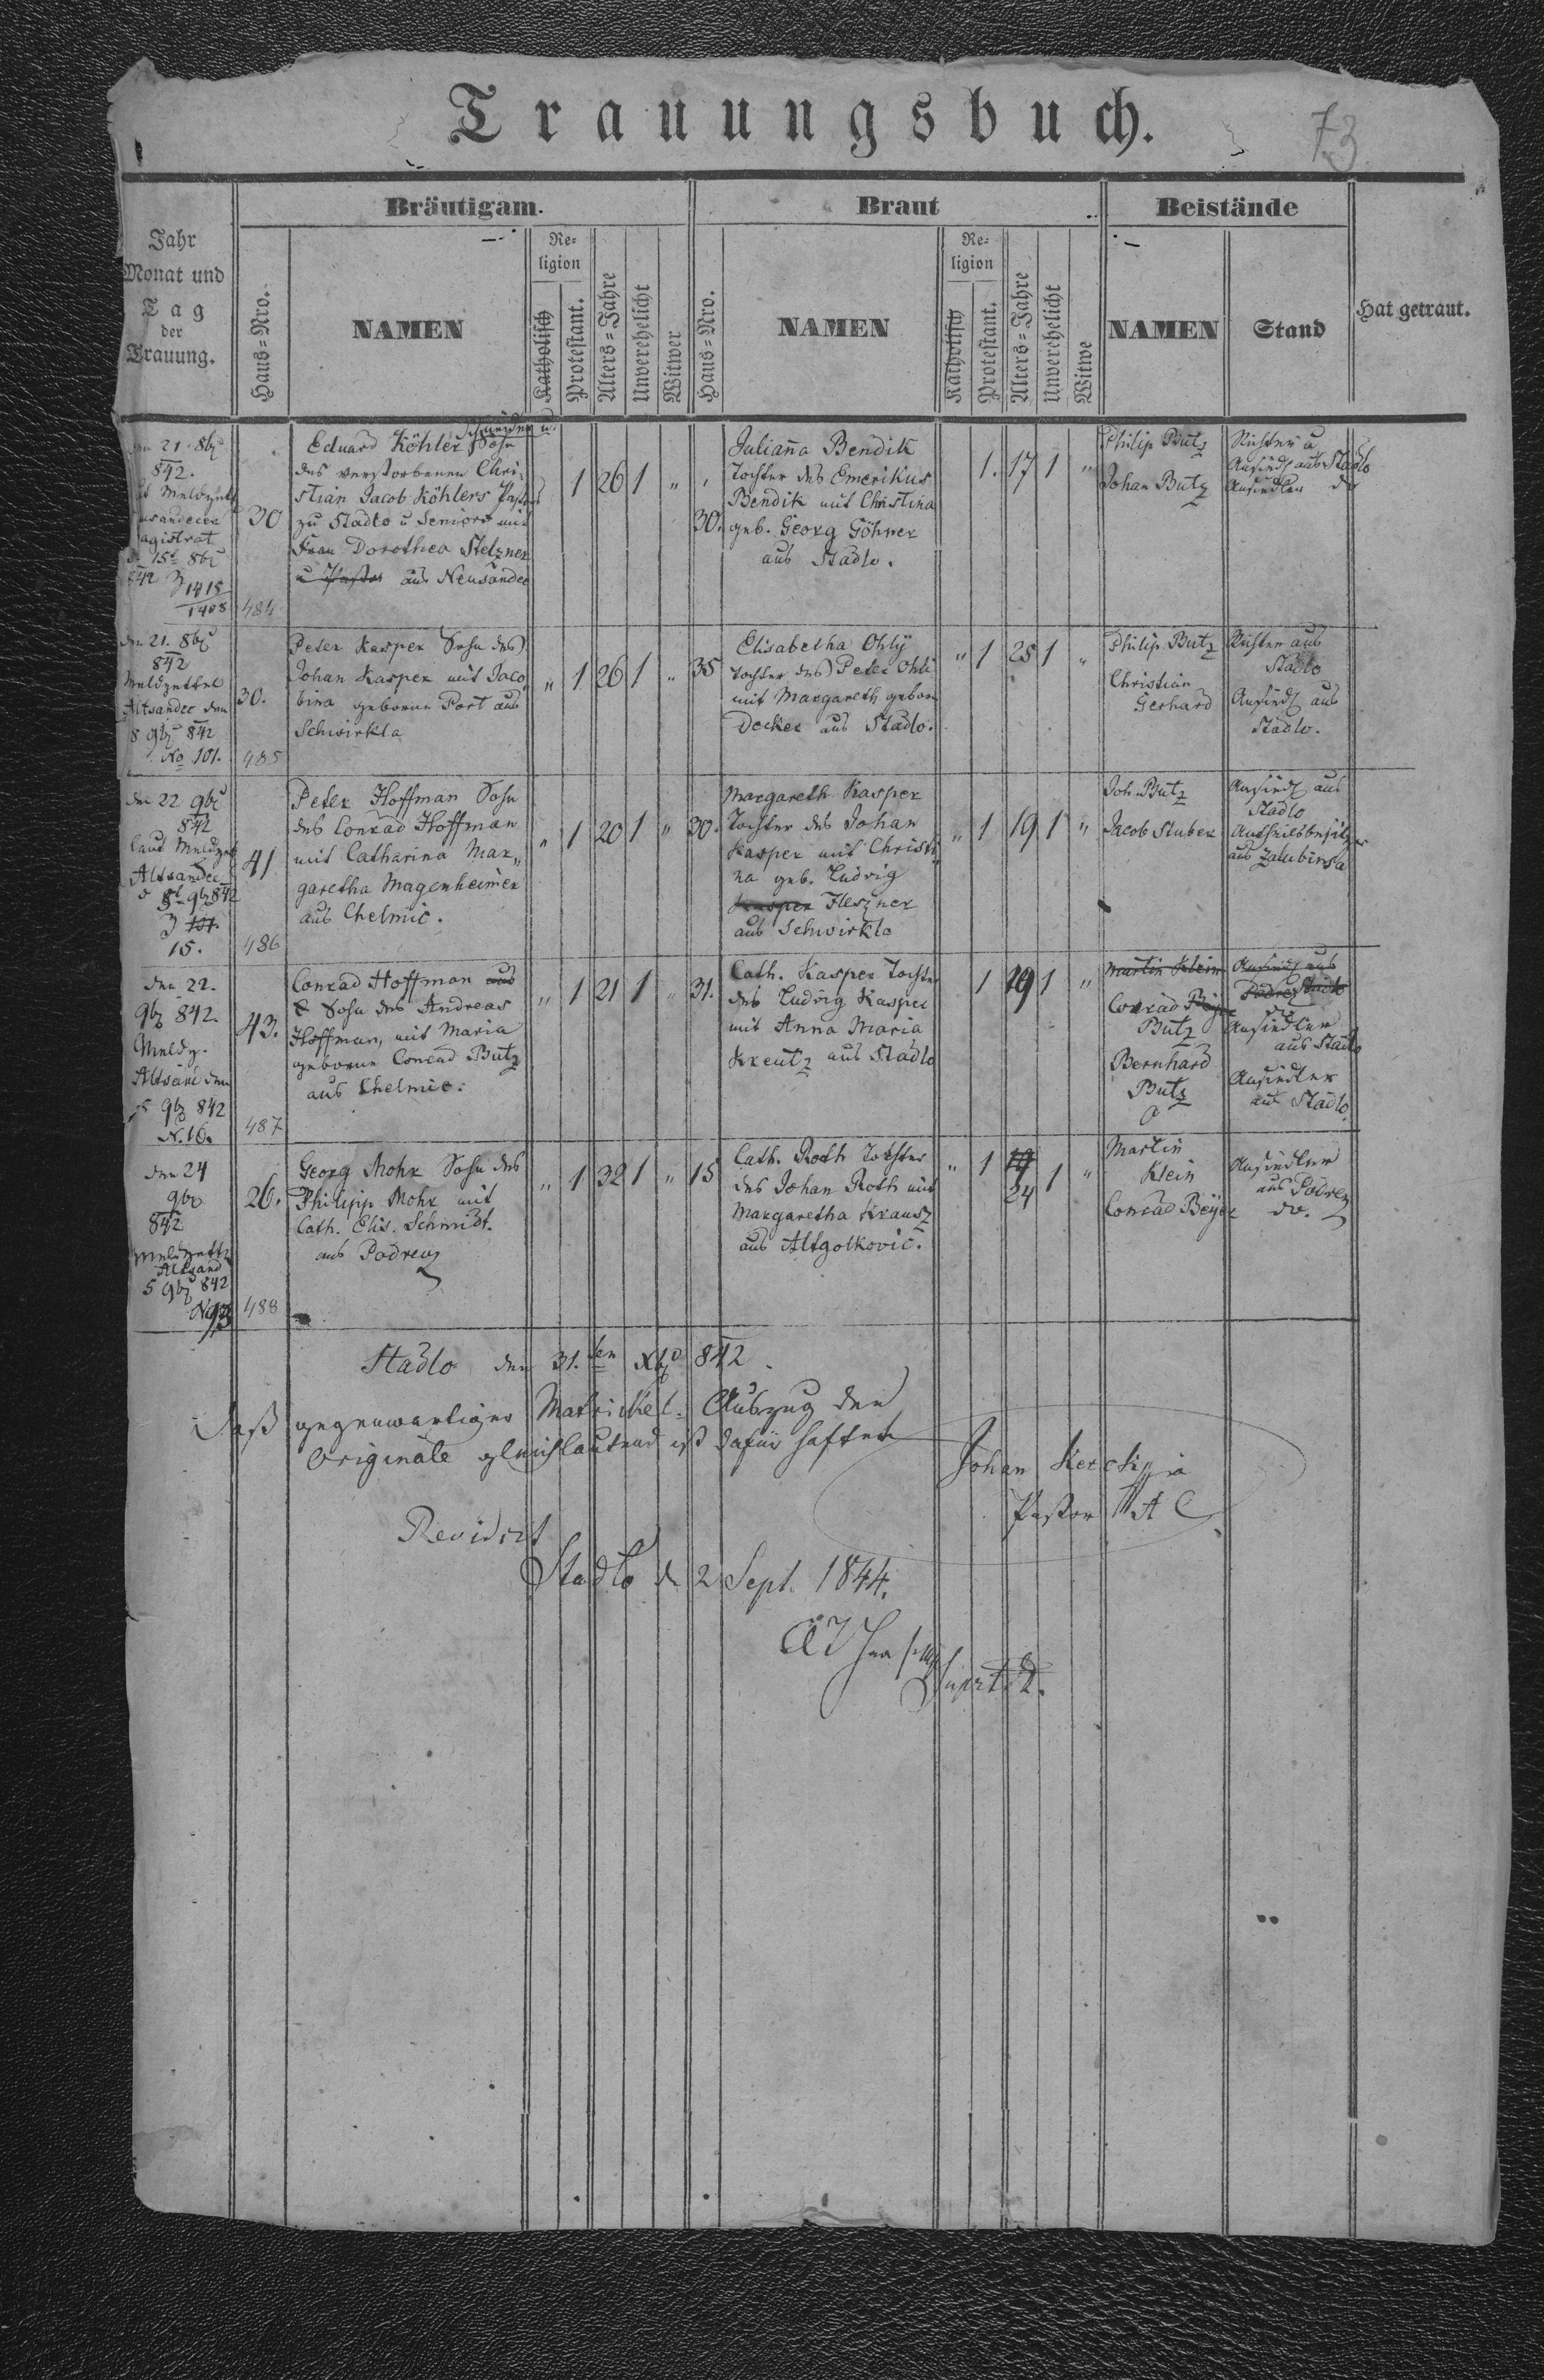 Trauungsbuch.
73
Jahr
Monat und
Tag
der
Trauung.
Bräutigam.
Haus-Nro.
NAMEN
Religion
Katholisch
Protestant.
Alters-Jahre
Unverehelicht
Witwer
Braut
Haus-Nro.
NAMEN
Religion
Katholisch
Protestant.
Alters-Jahre
Unverehelicht
Witwe
Beistände
NAMEN
Stand
Hat getraut.
21. 8b
842.
Meldzett
15t 8b
842 3 1415
1408
30
484
Schneider u.
Eduard Köhler Sohn
des verstorbenen Chri-
stian Jacob Köhlers Pastors
zu Stadlo u Seniors mit
Frau Dorothea Stelzner
u Pastor aus Neusandec
1 26 1 "
30.
Julianna Bendik
Tochter des Emerikus
Bendik mit Christina
geb. Georg Göhner
aus Stadlo.
1. 17 1 "
Philip Butz
Johan Butz
Richter u
Ansiedl aus Stadlo
Ansiedler do
den 21. 8b
842
Meldzettel
Altsandec den
8 9b 842
No 101.
30.
485
Peter Kasper Sohn des
Johan Kasper mit Jaco
bina geborne Port aus
Schwirkla
" 1 26 1 "
35
Elisabetha Ohly
Tochter des Peter Ohli
mit Margareth geborn
Decker aus Stadlo.
" 1 25 1 "
Philip Butz
Christian
Gerhard
Richter aus
Stadlo
Ansiedl aus
Stadlo.
den 22 9b
842
laut Meldzet
Altsandec
8t 9b 842
3 101.
15.
41
486
Peter Hoffman Sohn
des Conrad Hoffman
mit Catharina Mar"
garetha Magenheimer
aus Chelmic.
" 1 20 1 "
30.
Margareth Kasper
Tochter des Johan
Kasper mit Christi
na geb. Ludvig
Kasper Fleszner
aus Schwirkla
" 1 19 1 "
Joh. Butz
Jacob Stuber
Ansiedl aus
Stadlo
Antheilsbesitzer
aus Zalubinsa
den 22.
9b 842.
Meldz.
Altsand den
5 9b 842
N. 16.
43.
487
Conrad Hoffman aus
Sohn des Andreas
Hoffman, mit Maria
geborne Conrad Butz
aus Chelmic.
" 1 21 1 "
31.
Cath. Kasper Tochter
des Ludvig Kasper
mit Anna Maria
Kreutz aus Stadlo
1 19 1 "
Martin Klein
Conrad Beyer
Butz
Bernhard
Butz
Ansiedl aus
Podrez
do
Ansiedler
aus Stadlo
Ansiedler
aus Stadlo.
den 24
9b
842
Meldzettl
Altsand
5 9b 842
No 93
26.
488
Georg Mohr Sohn des
Philipp Mohr mit
Cath. Elis. Schmidt.
aus Podrez
" 1 32 1 "
15
Cath. Roth Tochter
des Johan Roth mit
Margaretha Krausz
aus Altgolkovic.
" 1 19 1 "
24
Martin
Klein
Conrad Beyer
Ansiedler
aus Podrez
do.
Stadlo den 31.ten Xb 842.
Daß gegenwärtiger Matrickel-Auszug den
Originale gleichlautend ist dafür haftet
Johan Kerekyia
Pastor A C
Revidirt
Stadlo d 2 Sept. 1844.